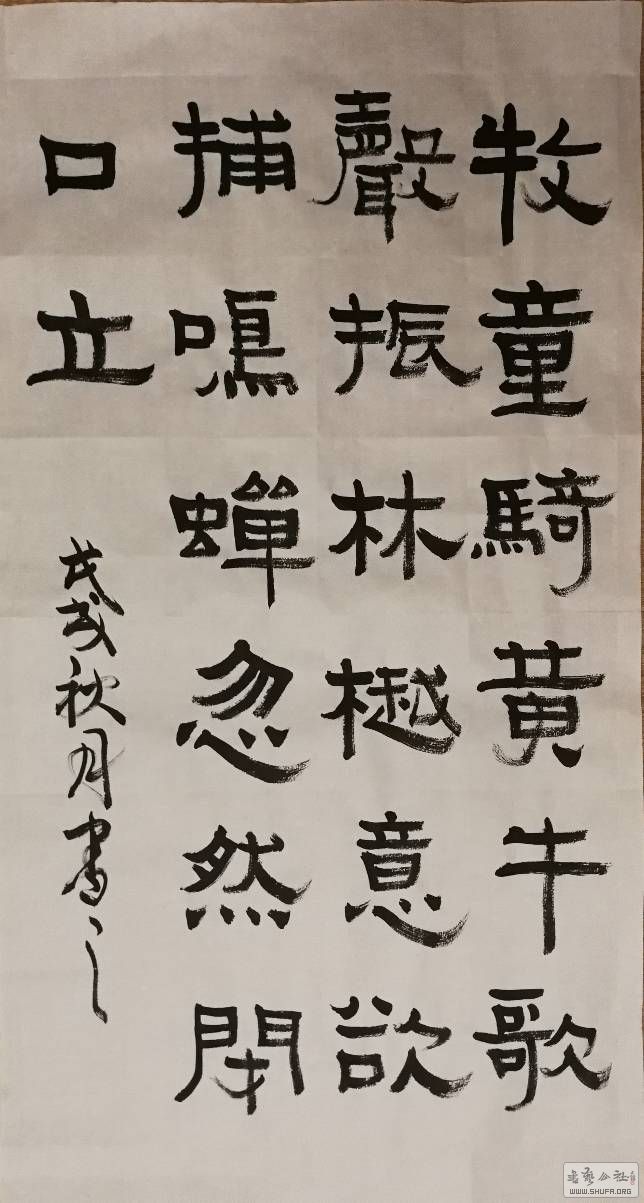 牧童騎黄牛歌
聲振林樾意欲
捕鳴蟬忽然閉
口立
戊戌秋月書之
書藝公社
WWW.SHUFA.ORG